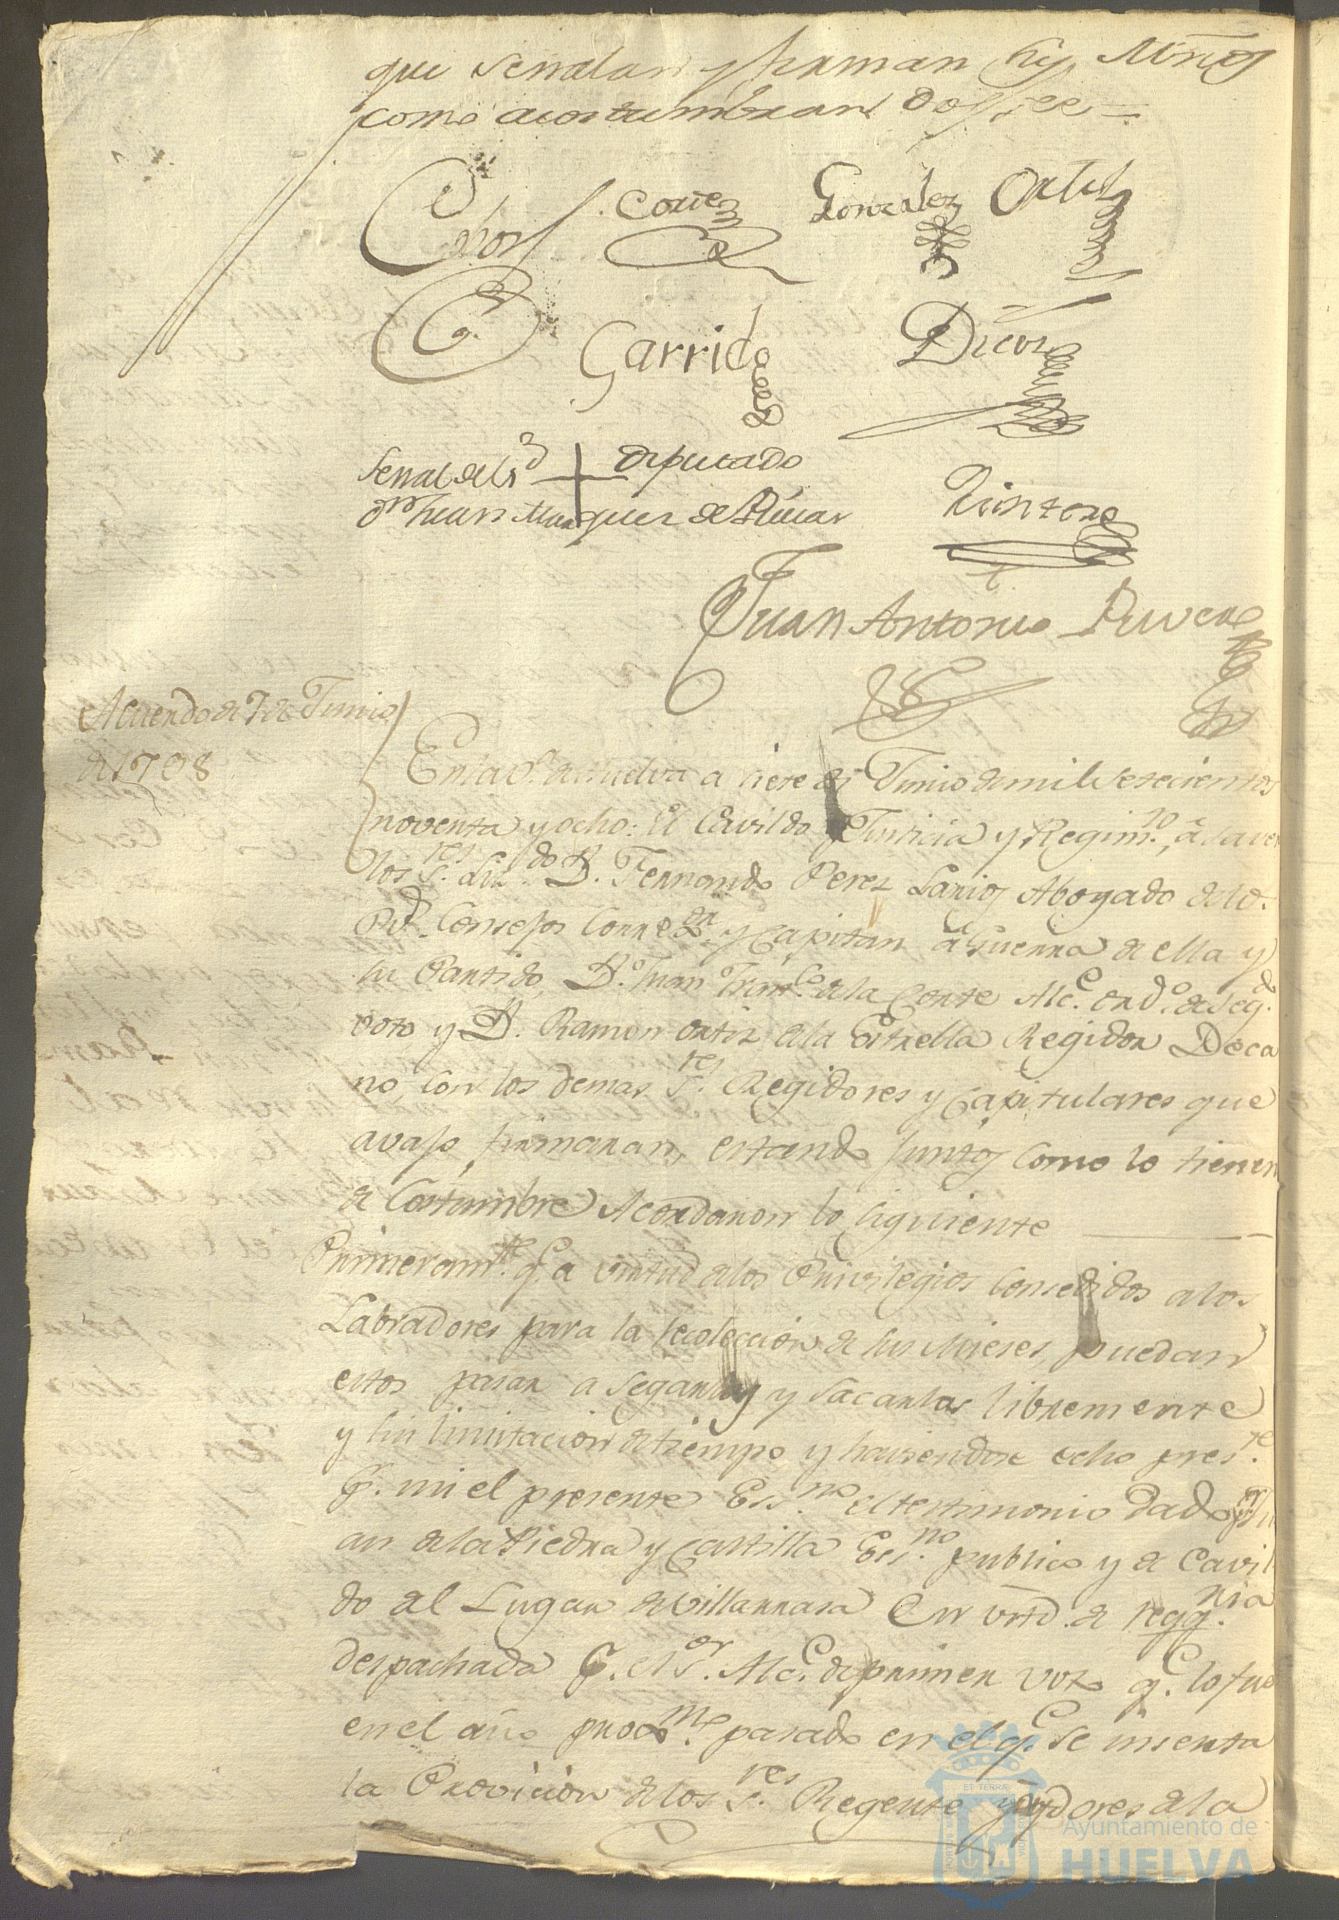 que señalan y firman sus Mrds
como acostumbran doy fee =
Corte
Gonzalez
Ortiz
Garrido
Señal del Sr + diputado
Dn Juan Marquez de
Quintero
Juan Antonio Rivera
Acuerdo de 7 de Junio
de 1798
En la Va. de Huelva a siete de Junio de mil setecientos
noventa y ocho: El Cavildo Justicia y Regimto, á saver
los Sres. Licdo. D. Fernando Perez Abogado de los
Rs. Consejos Corregor. y Capitan á Guerra de ella y
su Partido, Dn. Juan Franco. de la Corte Alce. ordo. de segdo.
voto y D. Ramon Ortiz de la Estrella Regidor Deca
no, con los demas Sres. Regidores y Capitulares que
avajo firmaran, estando juntos como lo tienen
de Costumbre Acordaron lo siguiente
Primeramte. qe. a virtud de los Privilegios Consedidos a los
Labradores para la recoleccion de sus Mieses, puedan
estos pasar a segarlas y sacarlas libremente
y sin limitacion de tiempo y haviendose echo preste.
pr. mi el presente Essno. el testimonio dado por Ju
an de la Piedra y Castilla Essno. publico y de Cavil
do del Lugar de Villarrasa En virtd. de reqqria.
despachada pr. el Sor. Alce. de primer voto qe. lo fue
en el año proxmo. pasado en el qe. se inserta
la Provicion de los Sres. Regente y oydores de la
Ayuntamiento de
HUELVA